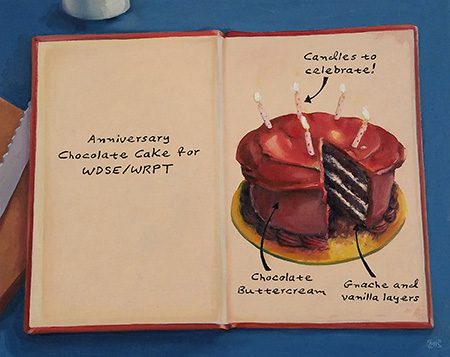 Anniversary
Chocolate Cake for
WDSE/WRPT
Candles to
celebrate!
Chocolate
Buttercream
Gnache and
vanilla layers